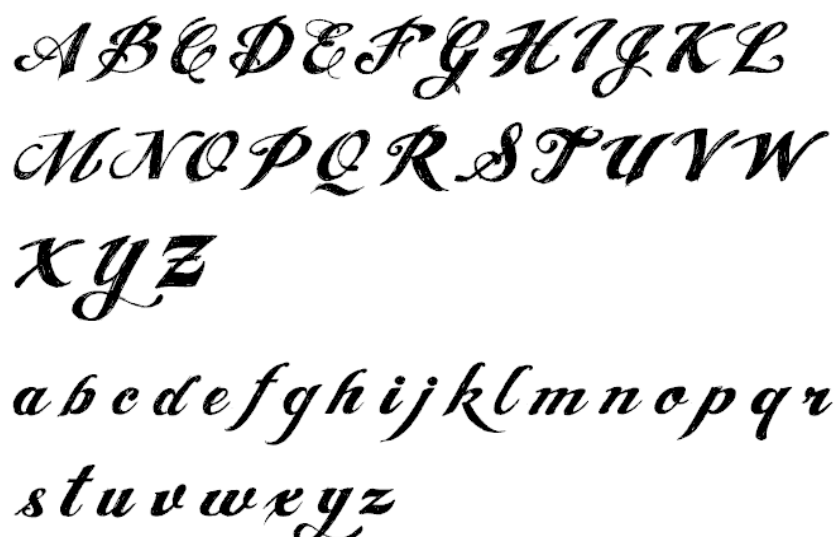 A B C D E F G H I J K L
M N O P Q R S T U V W
X Y Z
a b c d e f g h i j k l m n o p q r
s t u v w x y z